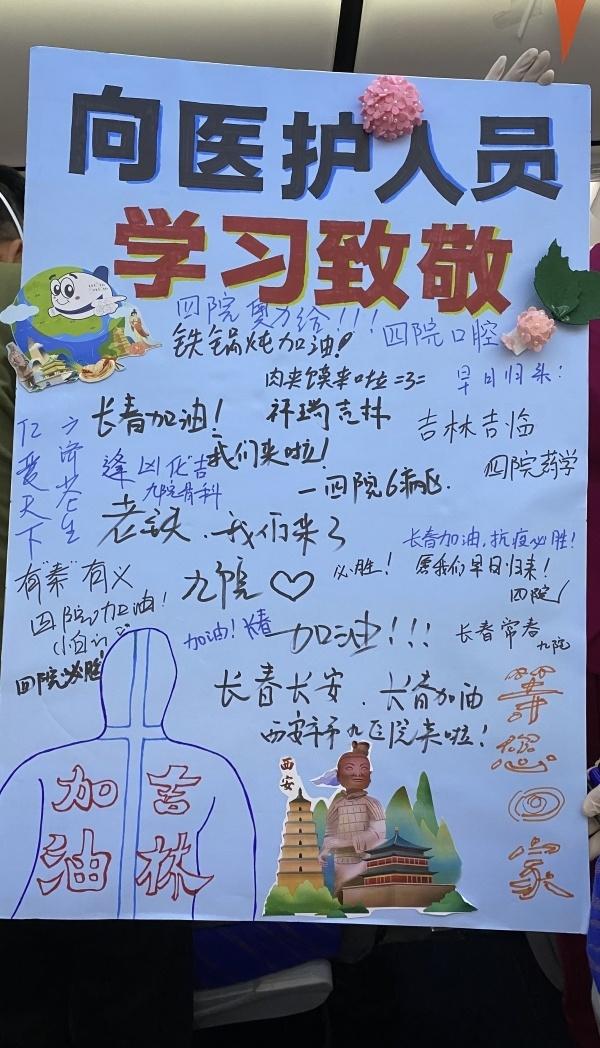 向医护人员
学习致敬
四院奥力给!!!
铁锅炖加油!
四院口腔
肉夹馍来啦=3=
早日归来!
长春加油!
祥瑞吉林
吉林吉临
仁爱天下
方济苍生
逢凶化吉
九院骨科
我们来啦!
四院药学
一四院6病区.
老铁.我们来了
长春加油,抗疫必胜!
有"秦"有义
九院♡
必胜!
愿我们早日归来!
四院
四院加油!
加油!长春
加油!!!
长春常春
九院
四院必胜!
长春长安.长春加油
西安市九医院来啦!
等您回家
加油
吉林
西安